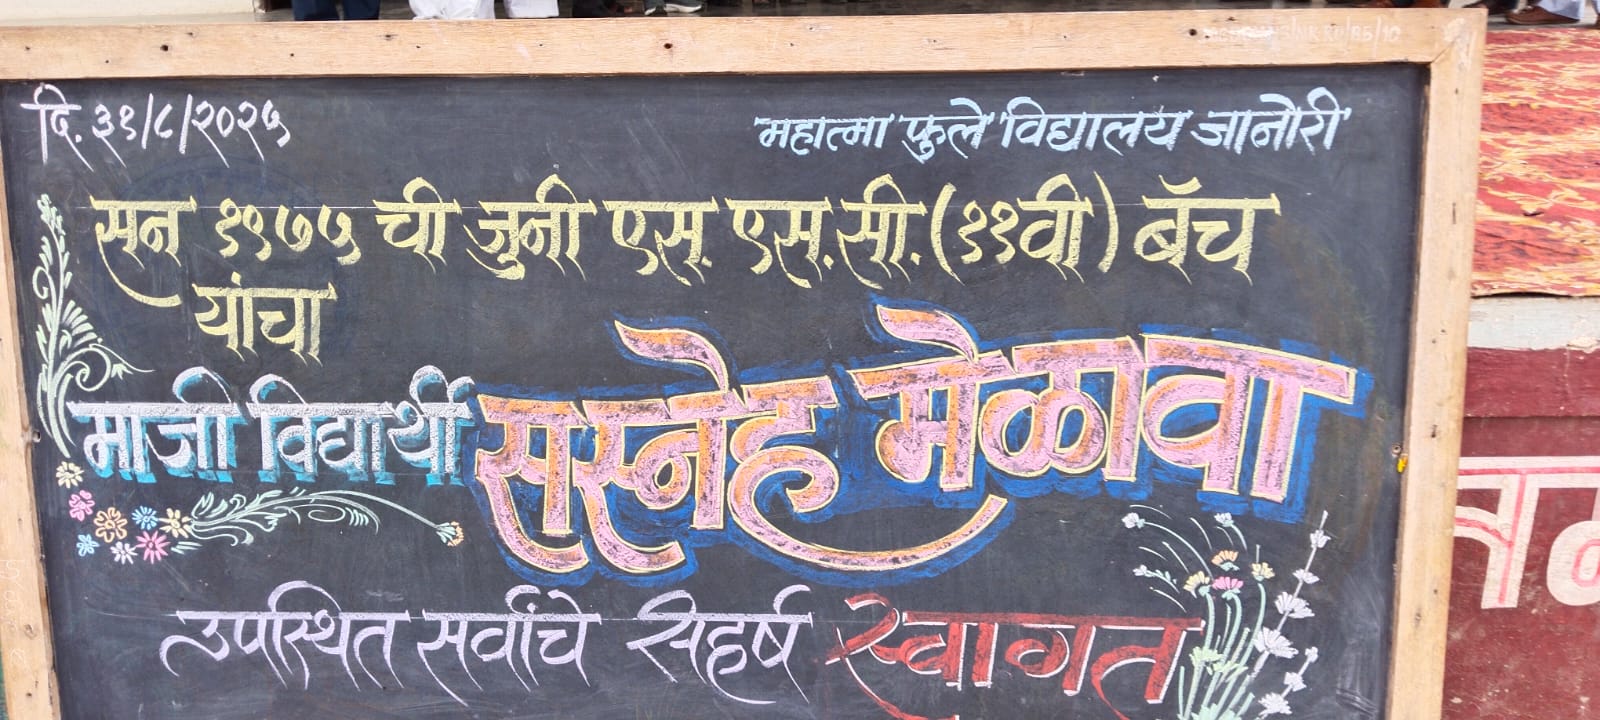 दि. ३१/८/२०२५
महात्मा फुले विद्यालय जानोरी
सन १९७५ ची जुनी एस. एस.सी. (११वी) बॅच
यांचा
माजी विद्यार्थी सस्नेह मेळावा
उपस्थित सर्वांचे सहर्ष स्वागत